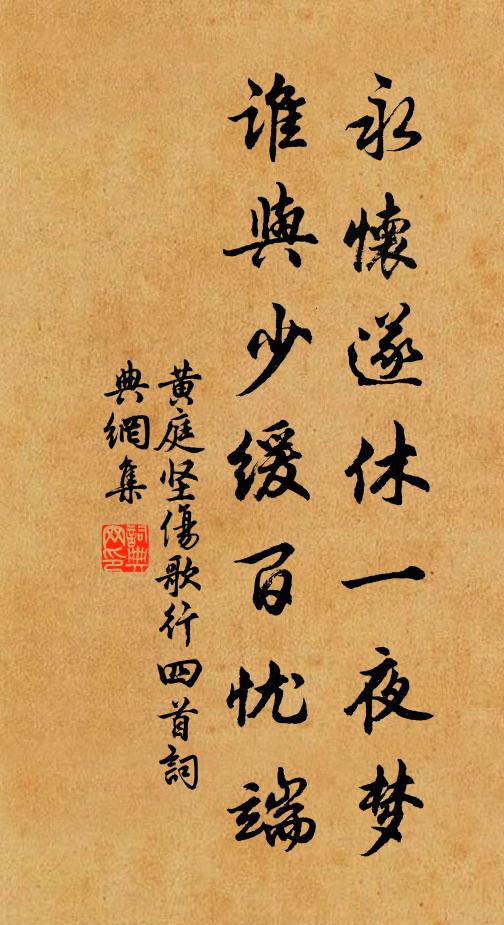 永懷遂休一夜梦
誰與少缓百忧端
黄庭坚傷歌行四首詞
典網集
詞典
网印